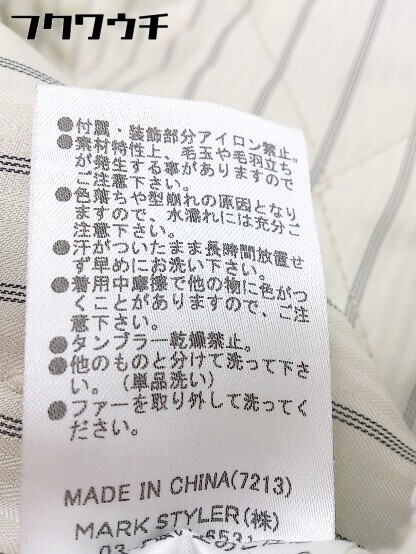 フクワウチ
●付属・装飾部分アイロン禁止。
●素材特性上、毛玉や毛羽立ち
が発生する事がありますので
ご注意下さい。
●色落ちや型崩れの原因となり
ますので、水濡れには充分ご
注意下さい。
●汗がついたまま長時間放置せ
ず早めにお洗い下さい。
●着用中摩擦で他の物に色がつ
くことがありますので、ご注
意下さい。
●タンブラー乾燥禁止。
●他のものと分けて洗って下さ
い。（単品洗い）
●ファーを取り外して洗ってく
ださい。
MADE IN CHINA(7213)
MARK STYLER(株)